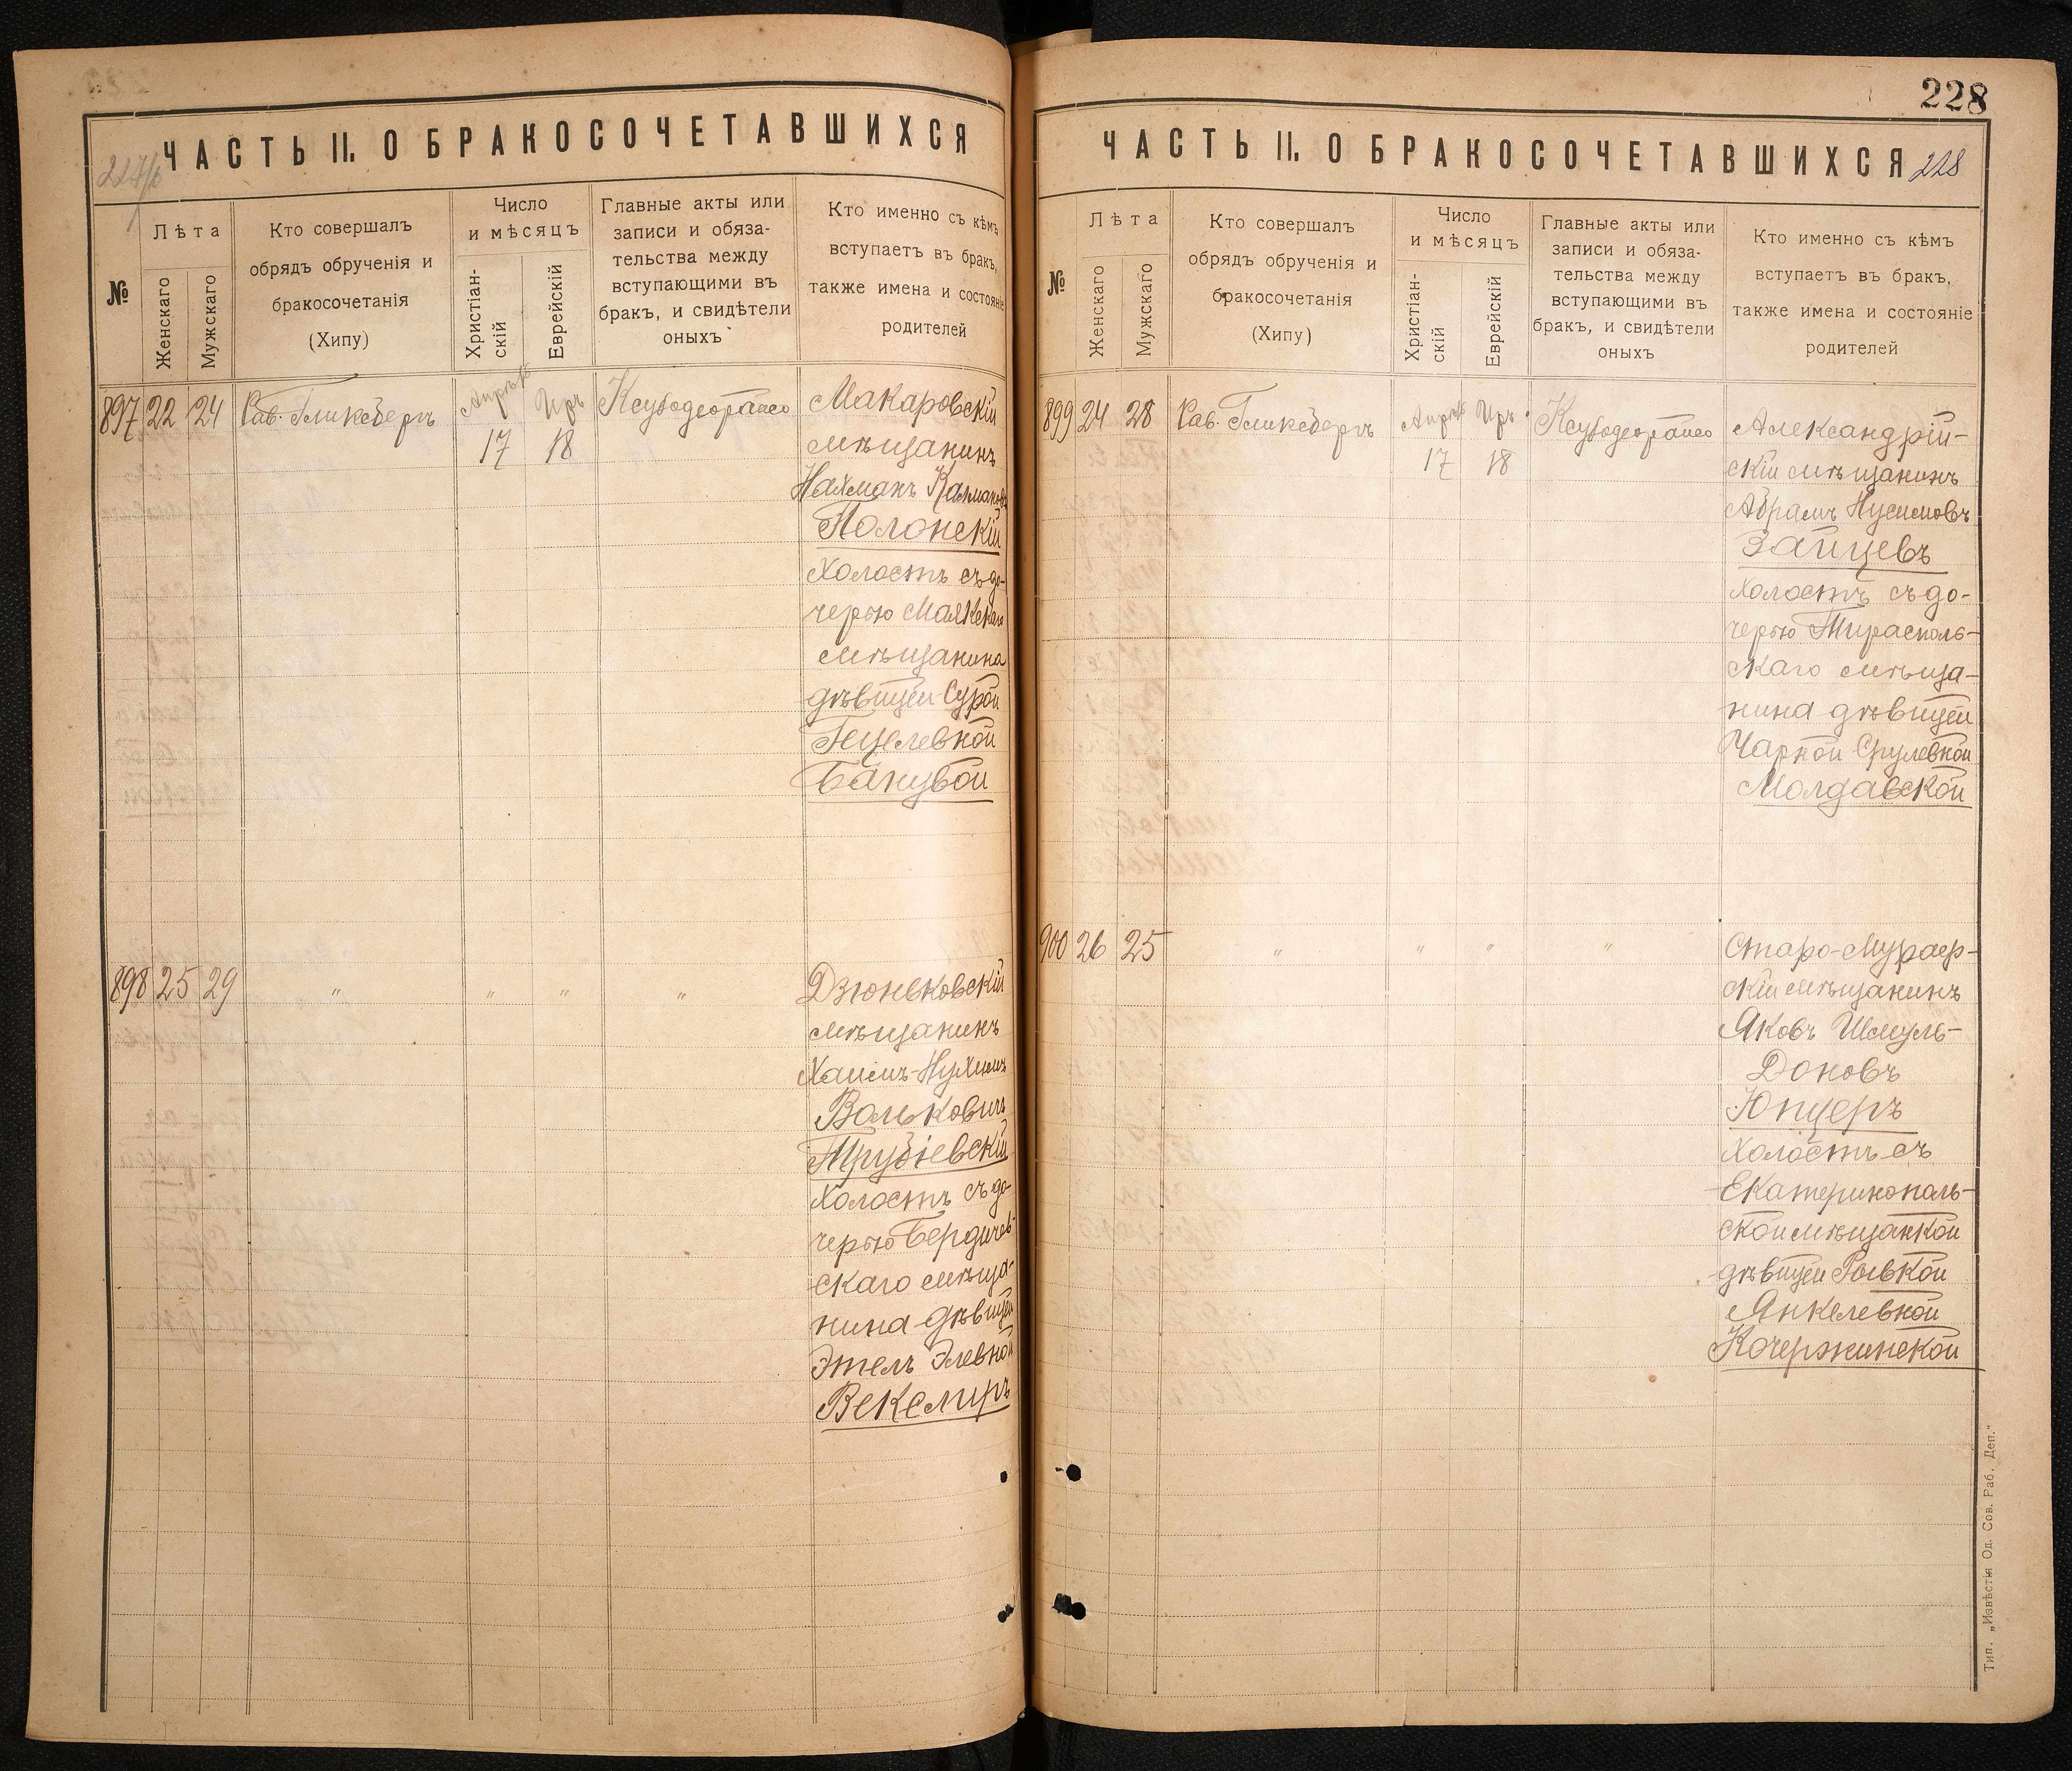 227/б
ЧАСТЬ II. О БРАКОСОЧЕТАВШИХСЯ
№
Лѣта
Женскаго
Мужскаго
Кто совершалъ
обрядъ обрученія и
бракосочетанія
(Хипу)
Число
и мѣсяцъ
Христіан-
скій
Еврейскій
Главные акты или
записи и обяза-
тельства между
вступающими въ
бракъ, и свидѣтели
оныхъ
Кто именно съ кѣмъ
вступаетъ въ бракъ,
также имена и состояніе
родителей
897 22 24 Рав. Гликсбергъ Апрѣль Иръ
17 18
Макаровскій
мѣщанинъ
Нахманъ Калмановъ
Полонскій
холостъ съ до-
черью Маякскаго
мѣщанина
дѣвицей Сурой
Гецелевной
898 25 29 " " " "
Дзюньковскій
мѣщанинъ
Хаимъ-Нухимъ
Вольковичъ
Трубіевскій
холостъ съ до-
черью Бердичев-
скаго мѣща-
нина дѣвицей
Этель Элевной
Векслиръ
228
ЧАСТЬ II. О БРАКОСОЧЕТАВШИХСЯ 228
№
Лѣта
Женскаго
Мужскаго
Кто совершалъ
обрядъ обрученія и
бракосочетанія
(Хипу)
Число
и мѣсяцъ
Христіан-
скій
Еврейскій
Главные акты или
записи и обяза-
тельства между
вступающими въ
бракъ, и свидѣтели
оныхъ
Кто именно съ кѣмъ
вступаетъ въ бракъ,
также имена и состояніе
родителей
899 24 28 Рав. Гликсбергъ Апрѣль Иръ
17 18
Александрій-
скій мѣщанинъ
Абрамъ Нусимовъ
Зайцевъ
холостъ съ до-
черью Тирасполь-
скаго мѣща-
нина дѣвицей
Чарной Срулевной
Молдавской
900 26 25 " " " "
Старо-
скій мѣщанинъ
Яковъ Шмуль-
Доновъ
Юпцеръ
холостъ съ
Екатеринополь-
ской мѣщанкой
дѣвицей
Янкелевной
Кочержинской
Тип. „Извѣстія Од. Сов. Раб. Деп."